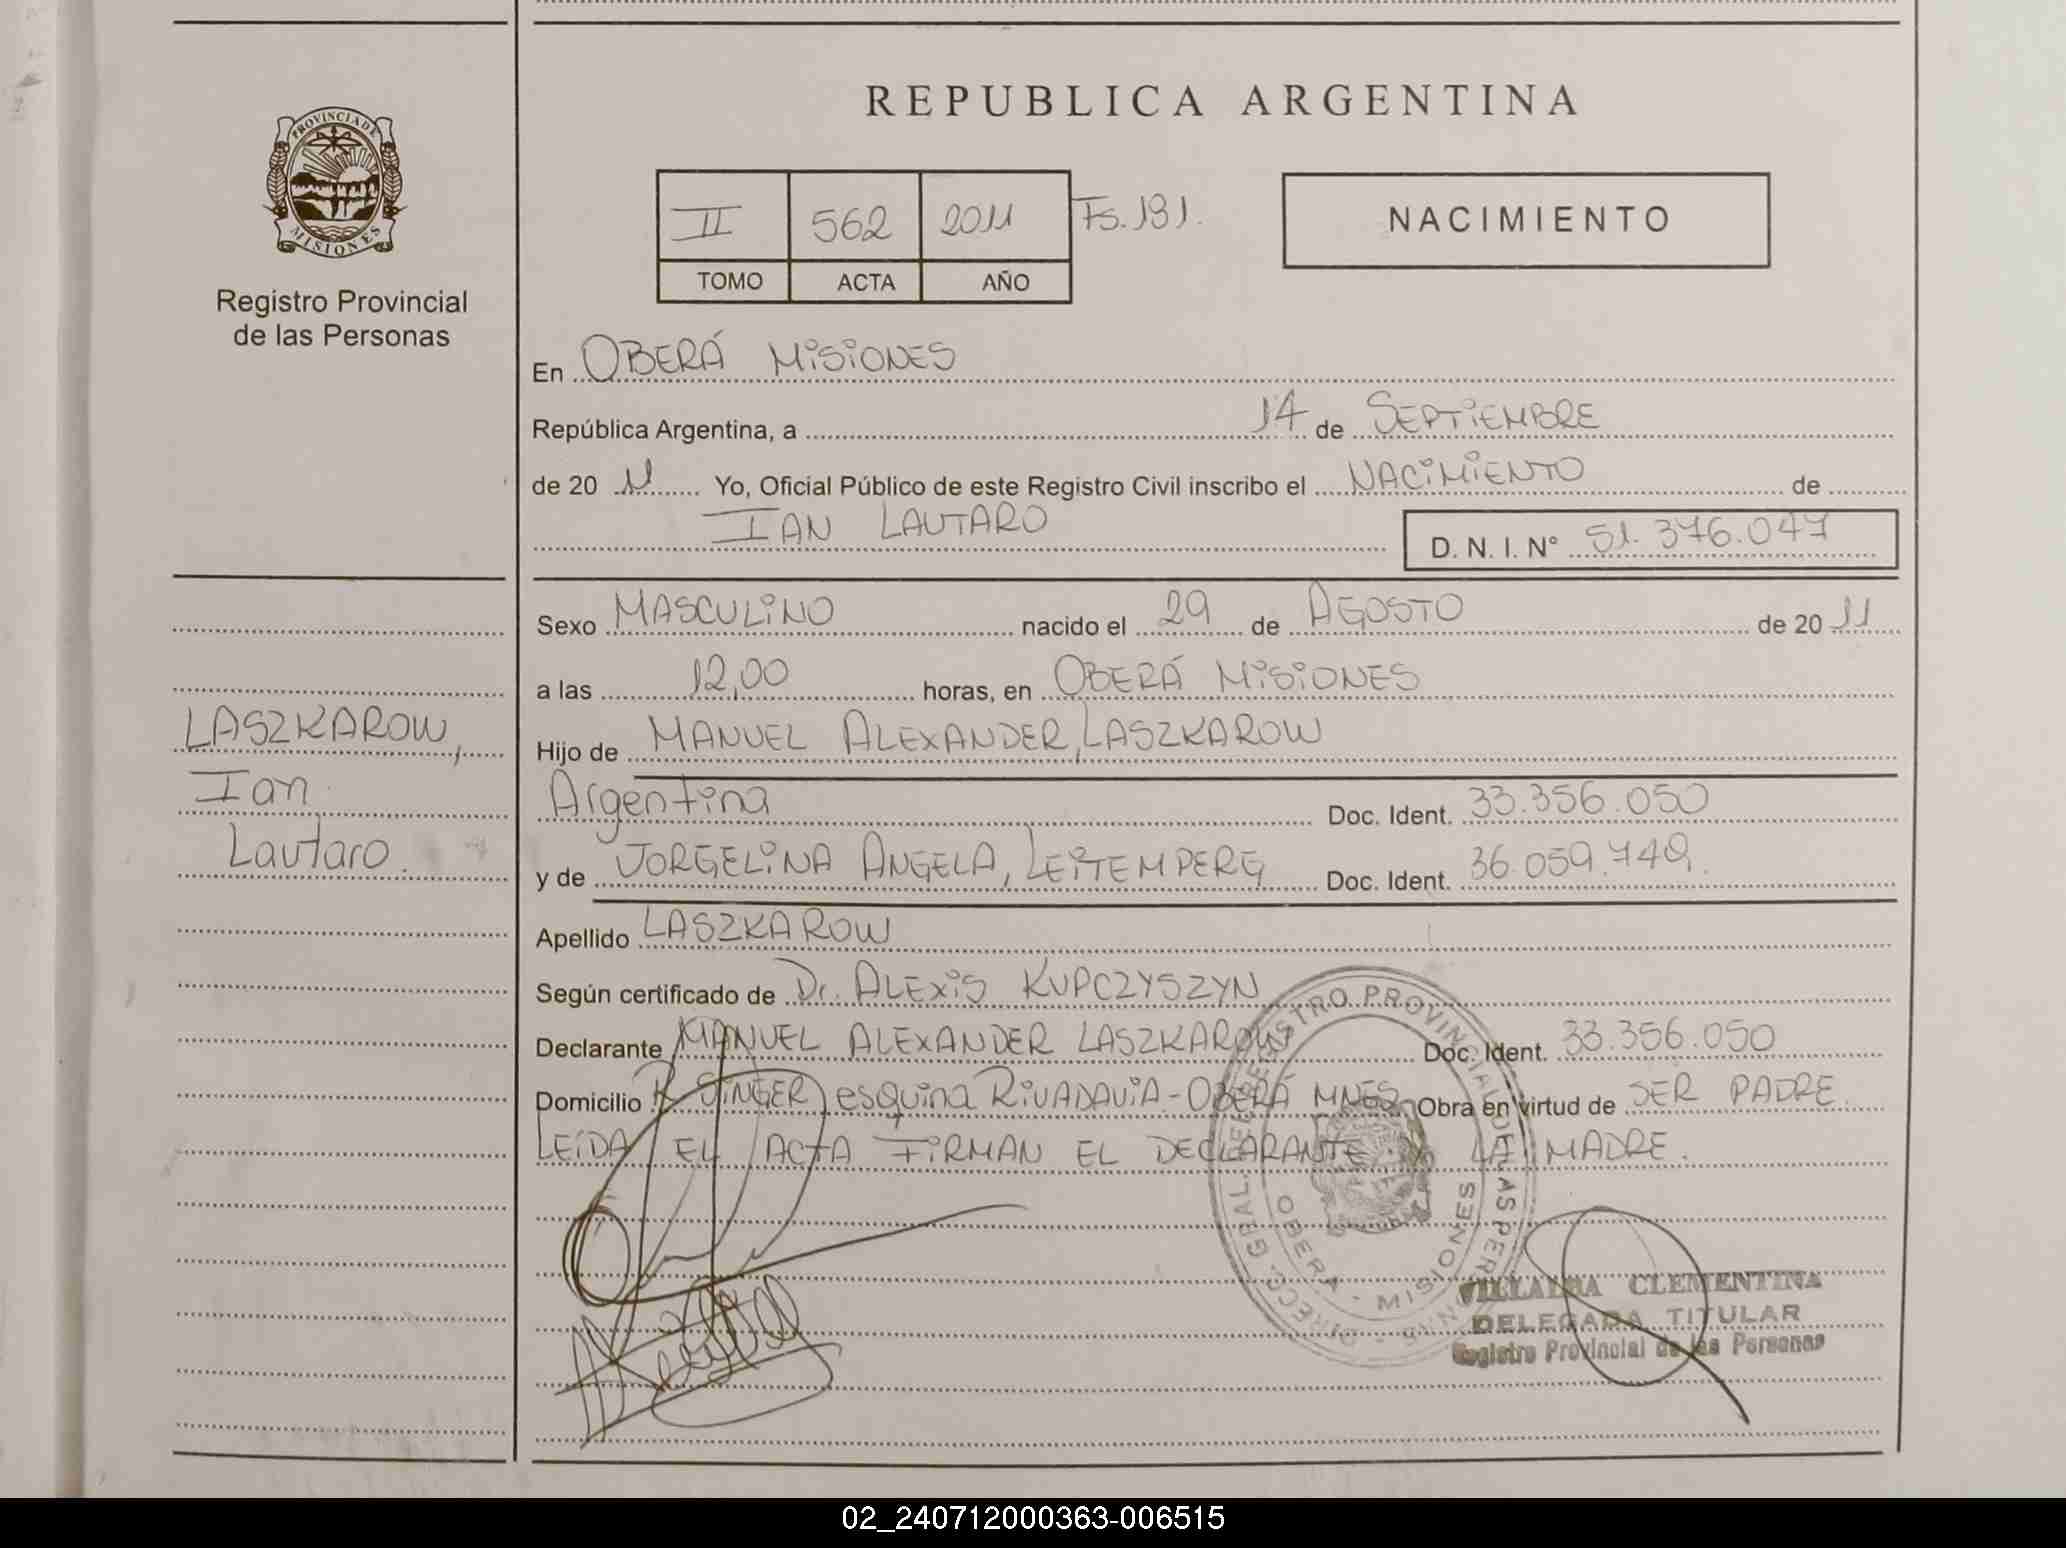 REPUBLICA ARGENTINA
PROVINCIA DE
MISIONES
Registro Provincial
de las Personas
II 562 2011 Fs. 191.
TOMO ACTA AÑO
NACIMIENTO
En OBERÁ MISIONES
República Argentina, a 14 de SEPTIEMBRE
de 20 11 Yo, Oficial Público de este Registro Civil inscribo el NACIMIENTO de
IAN LAUTARO D. N. I. N° 51.376.047
Sexo MASCULINO nacido el 29 de AGOSTO de 20 11
a las 12,00 horas, en OBERÁ MISIONES
LASZKAROW,
Ian
Lautaro.
Hijo de MANUEL ALEXANDER, LASZKAROW
Argentina Doc. Ident. 33.356.050
y de JORGELINA ANGELA, LEITEMPERG Doc. Ident. 36.059.749.
Apellido LASZKAROW
Según certificado de Dr. ALEXIS KUPCZYSZYN
Declarante MANUEL ALEXANDER LASZKAROW Doc. Ident. 33.356.050
Domicilio R. SINGER esquina RIVADAVIA - OBERÁ MNES. Obra en virtud de SER PADRE
LEÍDA EL ACTA FIRMAN EL DECLARANTE Y LA MADRE.
DIRECC. GRAL. DEL REGISTRO PROVINCIAL DE LAS PERSONAS
OBERA - MISIONES
VILLALBA CLEMENTINA
DELEGADA TITULAR
Registro Provincial de las Personas
02_240712000363-006515